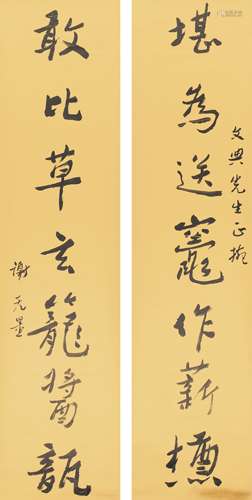 堪為送竈作薪槱
文興先生正
敢比草玄籠醬瓿
謝无量